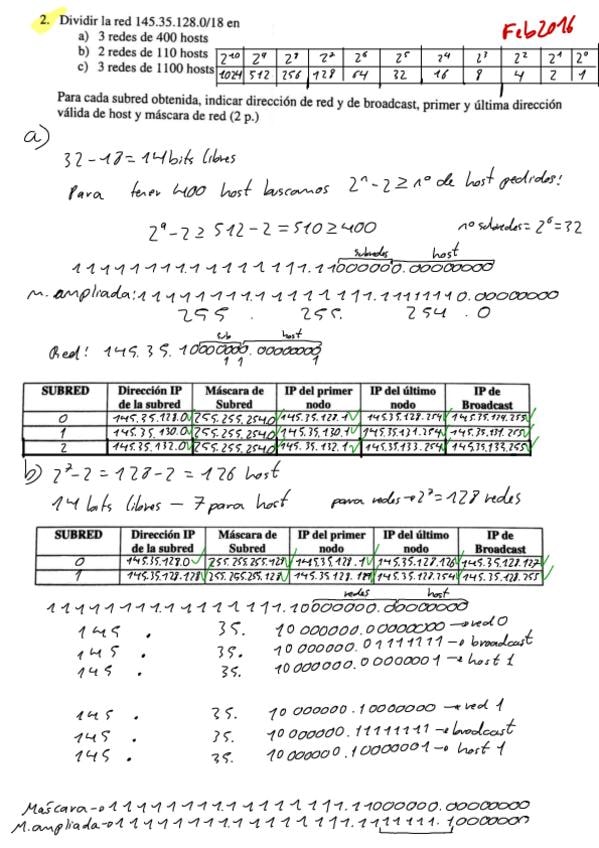 2. Dividir la red 145.35.128.0/18 en
Feb2016
a) 3 redes de 400 hosts
b) 2 redes de 110 hosts
c) 3 redes de 1100 hosts
2^10 2^9 2^8 2^7 2^6 2^5 2^4 2^3 2^2 2^1 2^0
1024 512 256 128 64 32 16 8 4 2 1
Para cada subred obtenida, indicar dirección de red y de broadcast, primer y última dirección
válida de host y máscara de red (2 p.)
a)
32-18=14 bits libres
Para tener 400 host buscamos 2^n-2≥nº de host pedidos:
2^9-2≥512-2=510≥400 nº subredes=2^6=32
subredes host
11111111.11111111.11000000.00000000
m. ampliada:11111111.11111111.11111110.00000000
255 . 255. 254 . 0
sub host
Red: 145.35.10000000.00000000
1 1 1
SUBRED Dirección IP de la subred Máscara de Subred IP del primer nodo IP del último nodo IP de Broadcast
0 145.35.128.0 255.255.254.0 145.35.128.1 145.35.128.254 145.35.129.255
1 145.35.130.0 255.255.254.0 145.35.130.1 145.35.131.254 145.35.131.255
2 145.35.132.0 255.255.254.0 145.35.132.1 145.35.133.254 145.35.133.255
b) 2^7-2=128-2=126 host
14 bits libres - 7 para host para redes→2^7=128 redes
SUBRED Dirección IP de la subred Máscara de Subred IP del primer nodo IP del último nodo IP de Broadcast
0 145.35.128.0 255.255.255.128 145.35.128.1 145.35.128.126 145.35.128.127
1 145.35.128.128 255.255.255.128 145.35.128.129 145.35.128.254 145.35.128.255
redes host
11111111.11111111.10000000.00000000
145 . 35. 10000000.00000000→red 0
145 . 35. 10000000.01111111→broadcast
145 . 35. 10000000.00000001→host 1
145 . 35. 10000000.10000000→red 1
145 . 35. 10000000.11111111→broadcast
145 . 35. 10000000.10000001→host 1
Máscara→11111111.11111111.11000000.00000000
M.ampliada→11111111.11111111.11111111.10000000